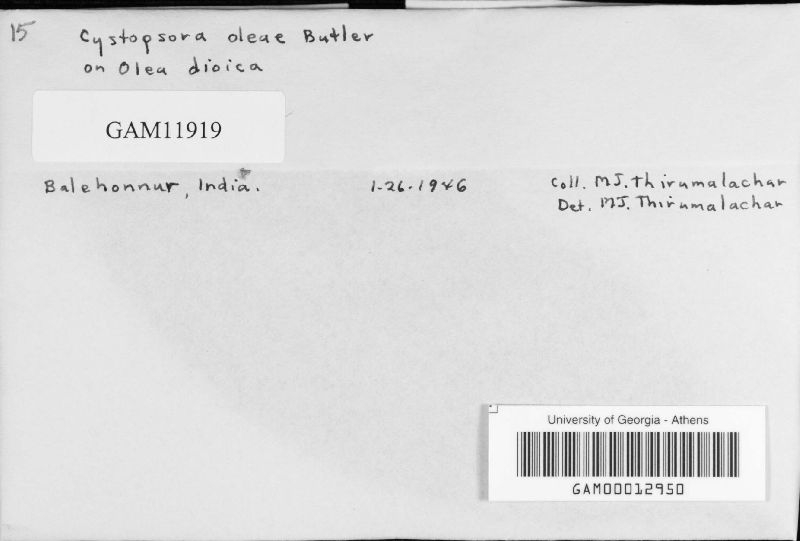 15
Cystopsora oleae Butler
on Olea dioica
GAM11919
Balehonnur, India. 1-26-1946 Coll. MJ. Thirumalachar
Det. MJ. Thirumalachar
University of Georgia - Athens
GAM00012950